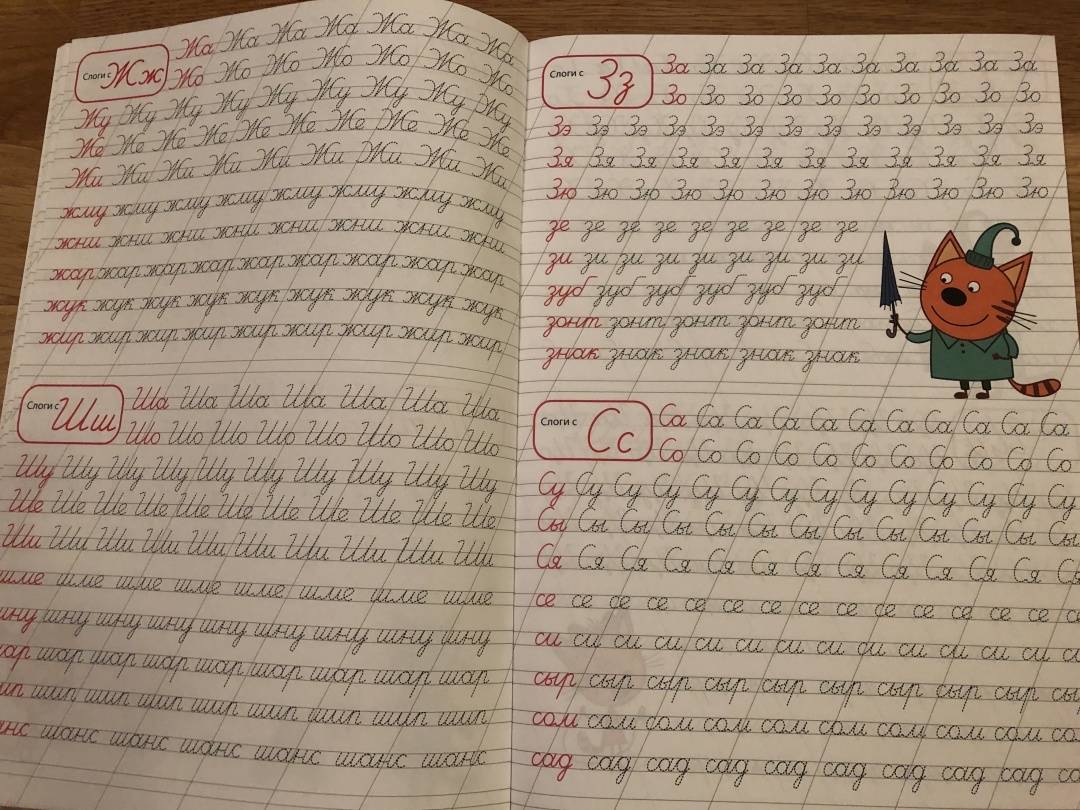 Слоги с Жж
Жа Жа Жа Жа Жа Жа Жа
Жо Жо Жо Жо Жо Жо Жо
Жу Жу Жу Жу Жу Жу Жу Жу Жу
Же Же Же Же Же Же Же Же Же Же
Жи Жи Жи Жи Жи Жи Жи Жи Жи
жму жму жму жму жму жму жму жму
жни жни жни жни жни жни жни жни
жар жар жар жар жар жар жар жар жар
жук жук жук жук жук жук жук жук жук
жир жир жир жир жир жир жир жир жир
Слоги с Шш
Ша Ша Ша Ша Ша Ша Ша
Шо Шо Шо Шо Шо Шо Шо Шо
Шу Шу Шу Шу Шу Шу Шу Шу Шу Шу
Ше Ше Ше Ше Ше Ше Ше Ше Ше Ше Ше
Ши Ши Ши Ши Ши Ши Ши Ши Ши Ши
шме шме шме шме шме шме шме шме
шну шну шну шну шну шну шну шну шну
шар шар шар шар шар шар шар шар
шип шип шип шип шип шип шип шип
шанс шанс шанс шанс шанс шанс
Слоги с Зз
За За За За За За За За За За
Зо Зо Зо Зо Зо Зо Зо Зо Зо Зо
Зэ Зэ Зэ Зэ Зэ Зэ Зэ Зэ Зэ Зэ Зэ Зэ Зэ
Зя Зя Зя Зя Зя Зя Зя Зя Зя Зя Зя Зя
Зю Зю Зю Зю Зю Зю Зю Зю Зю Зю Зю Зю
зе зе зе зе зе зе зе зе зе
зи зи зи зи зи зи зи зи зи
зуб зуб зуб зуб зуб зуб
зонт зонт зонт зонт зонт
знак знак знак знак знак
Слоги с Сс
Са Са Са Са Са Са Са Са Са Са Са
Со Со Со Со Со Со Со Со Со Со Со
Су Су Су Су Су Су Су Су Су Су Су Су Су Су
Сы Сы Сы Сы Сы Сы Сы Сы Сы Сы Сы Сы Сы
Ся Ся Ся Ся Ся Ся Ся Ся Ся Ся Ся Ся Ся
се се се се се се се се се се се се се се
си си си си си си си си си си си си си
сыр сыр сыр сыр сыр сыр сыр сыр сыр
сом сом сом сом сом сом сом сом сом
сад сад сад сад сад сад сад сад сад